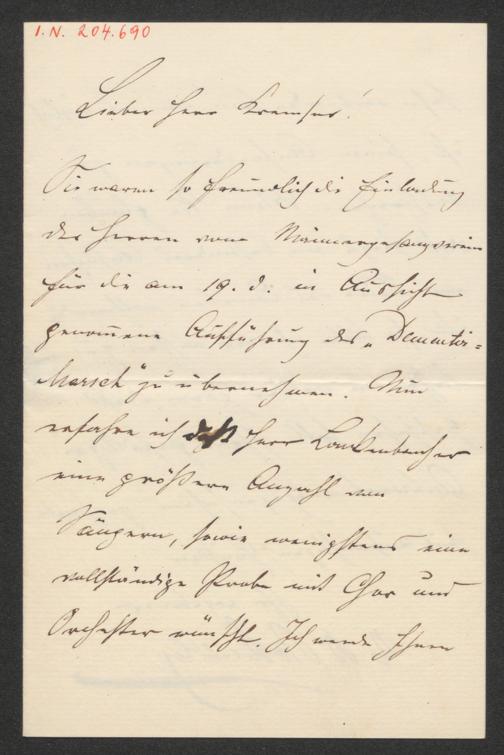 I.N. 204.690
Lieber Herr Kremser!
Sie waren so freundlich die Einladung
der Herren vom Männergesangverein
für die am 19. d. in Aussicht
genommene Aufführung des „Dementir-
Marsch" zu übernehmen. Nun
erfahre ich daß Herr
eine größere Anzahl von
Sängern, sowie wenigstens eine
vollständige Probe mit Chor und
Orchester wünscht. Ich werde Ihnen